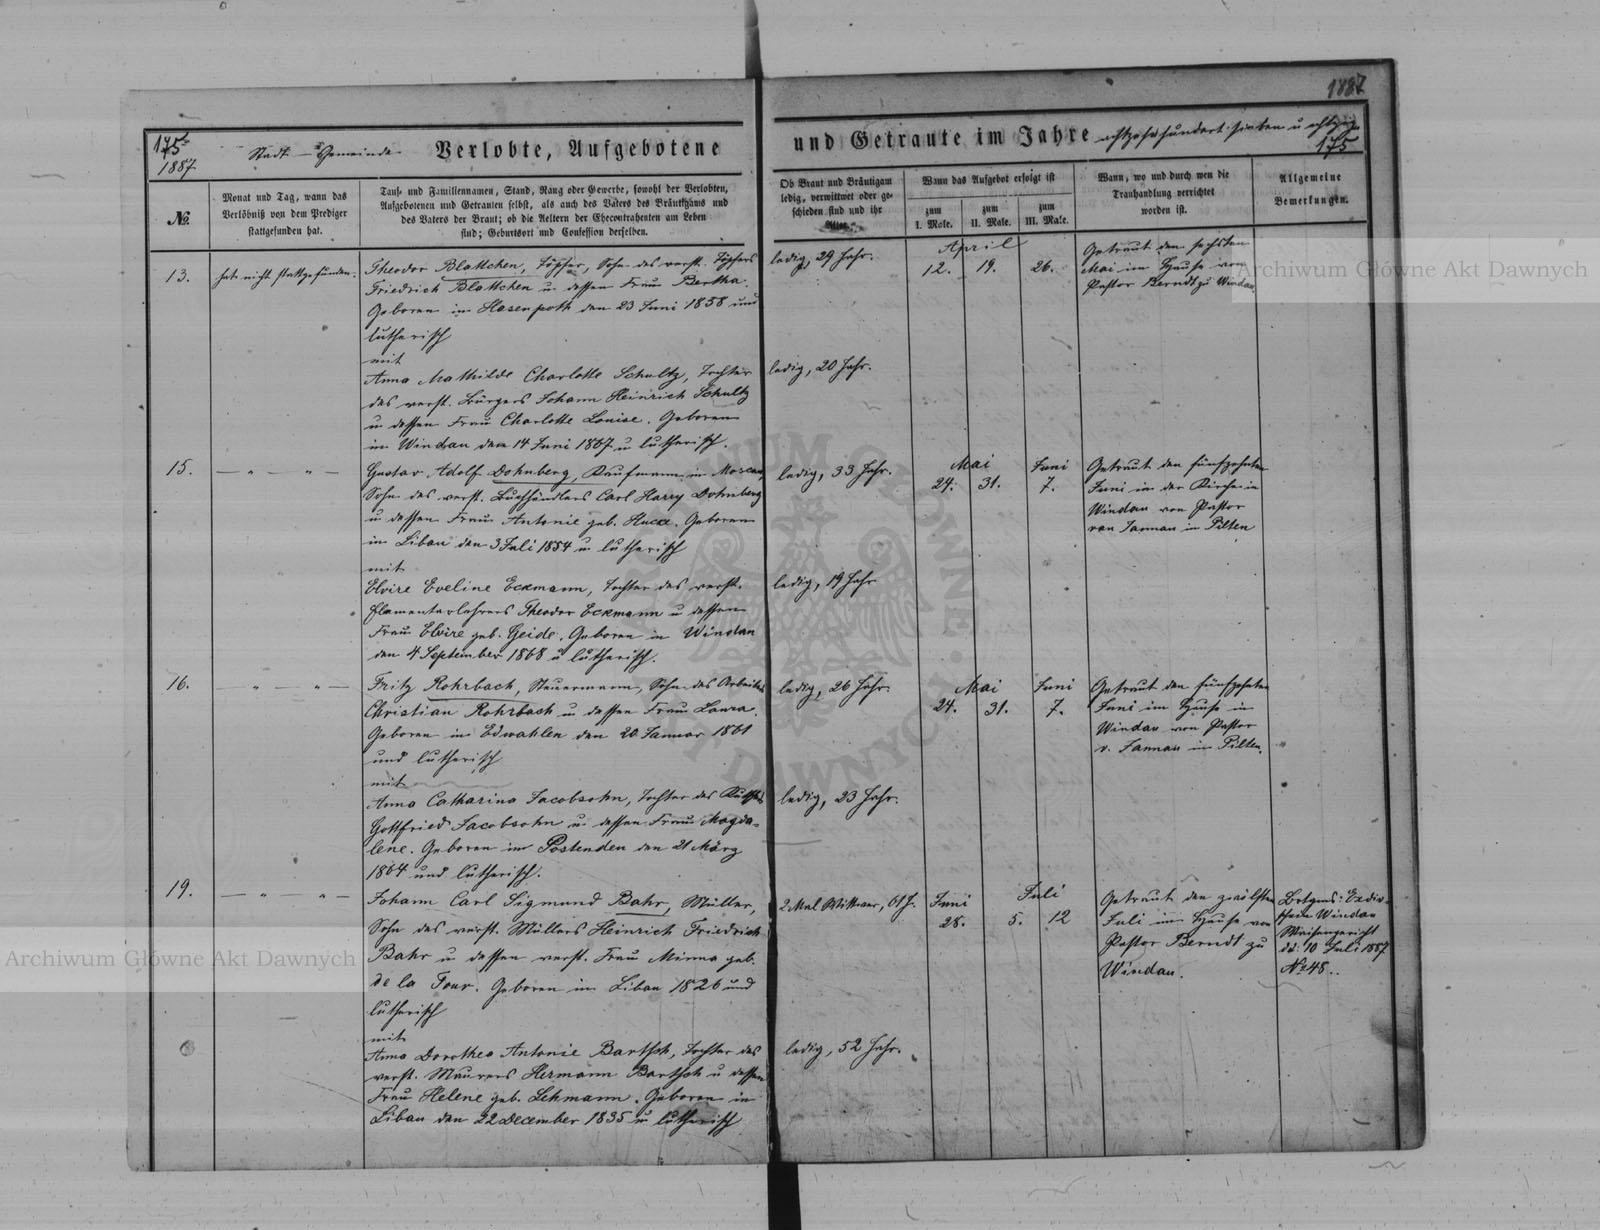 1887
175
1887.
Stadt-Gemeinde
Verlobte, Aufgebotene
und Getraute im Jahre achtzehnhundert sieben u achtzig.
175
№.
Monat und Tag, wann das
Verlöbniß von dem Prediger
stattgefunden hat.
Tauf- und Familiennamen, Stand, Rang oder Gewerbe, sowohl der Verlobten,
Aufgebotenen und Getrauten selbst, als auch des Vaters des Bräutigams und
des Vaters der Braut; ob die Aeltern der Ehecontrahenten am Leben
sind; Geburtsort und Confession derselben.
Ob Braut und Bräutigam
ledig, verwittwet oder ge-
schieden sind und ihr
Alter.
Wann das Aufgebot erfolgt ist
zum
I. Male.
zum
II. Male.
zum
III. Male.
Wann, wo und durch wen die
Trauhandlung verrichtet
worden ist.
Allgemeine
Bemerkungen.
13.
hat nicht stattgefunden.
Theodor Blattchen, Töpfer, Sohn des verst. Töpfers
Friedrich Blattchen u dessen Frau Bertha.
Geboren in Hasenpoth den 23 Juni 1858 und
lutherisch
mit
Anna Mathilde Charlotte Schultz, Tochter
des verst. Bürgers Johann Heinrich Schultz
u dessen Frau Charlotte Louise. Geboren
in Windau den 14 Juni 1867 u lutherisch.
ledig, 29 Jahr.
ledig, 20 Jahr.
April
12. 19. 26.
Getraut den sechsten
Mai im Hause von
Pastor Berndt zu Windau.
15.
— " — " —
Gustav Adolf Dohnberg, Kaufmann in Moscau,
Sohn des verst. Buchhändlers Carl Harry Dohnberg
u dessen Frau Antonie geb. Hucke. Geboren
in Libau den 3 Juli 1854 u lutherisch
mit
Elvire Eveline Eckmann, Tochter des verst.
Elementarlehrers Theodor Eckmann u dessen
Frau Elvire geb. Geide. Geboren in Windau
den 4 September 1868 u lutherisch.
ledig, 33 Jahr.
ledig, 19 Jahr
Mai Juni
24. 31. 7.
Getraut den fünfzehnten
Juni in der Kirche in
Windau von Pastor
von Sannau in Pilten
16.
— " — " —
Fritz Rohrbach, Steuermann, Sohn des Arbeiters
Christian Rohrbach u dessen Frau Laura.
Geboren in Edwahlen den 20 Januar 1861
und lutherisch
mit
Anna Catharina Jacobsohn, Tochter des
Gottfried Jacobsohn u dessen Frau Magda-
lene. Geboren in Postenden den 21 März
1864 und lutherisch.
ledig, 26 Jahr.
ledig, 23 Jahr.
Mai Juni
24. 31. 7.
Getraut den fünfzehnten
Juni im Hause in
Windau von Pastor
v. Sannau in Pilten.
19.
— " — " —
Johann Carl Sigmund Bahr, Müller,
Sohn des verst. Müllers Heinrich Friedrich
Bahr u dessen verst. Frau Minna geb.
de la Four. Geboren in Libau 1826 und
lutherisch
mit
Anna Dorothea Antonie Bartsch, Tochter des
verst. Maurers Hermann Bartsch u dessen
Frau Helene geb. Lehmann. Geboren in
Libau den 22 December 1835 u lutherisch
2 Mal Wittwer, 61 J.
ledig, 52 Jahr.
Juni Juli
28. 5. 12
Getraut den zwölften
Juli im Hause von
Pastor Berndt zu
Windau.
Windau
Waisengericht
dd: 10 Juli 1887
№ 48.
Archiwum Główne Akt Dawnych
Archiwum Główne Akt Dawnych